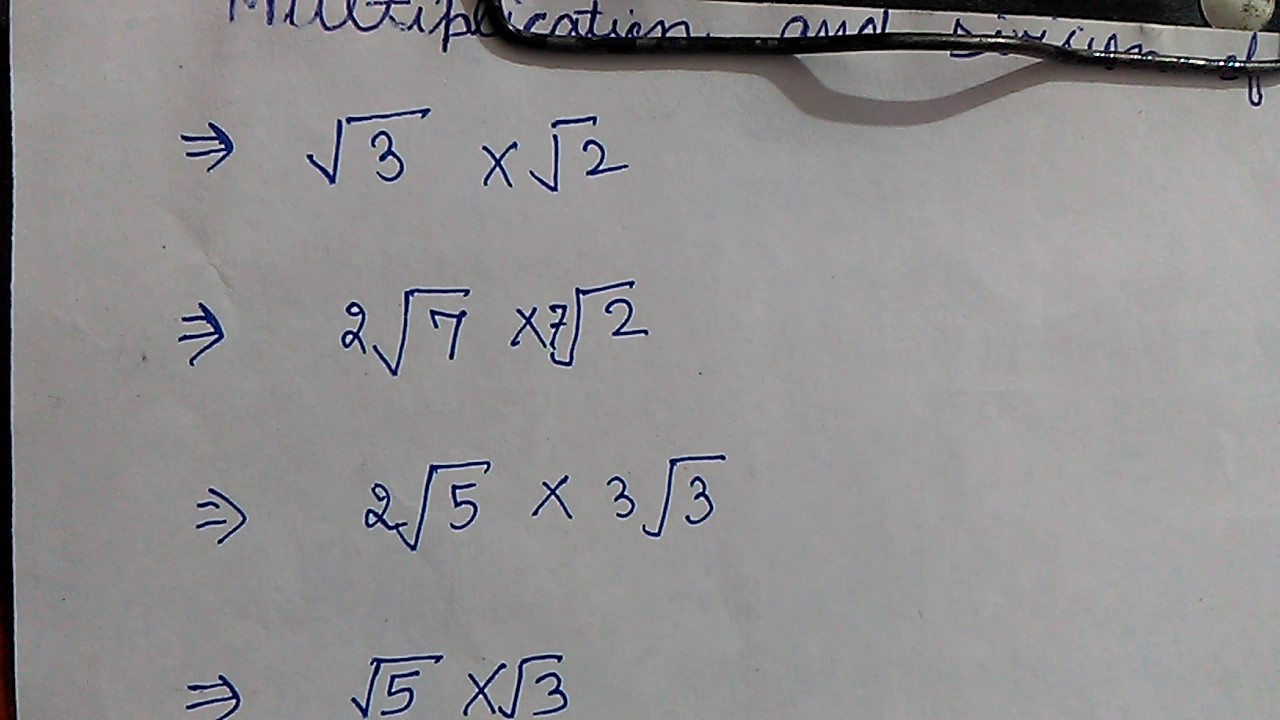 Multiplication and Division of
⇒ √3 × √2
⇒ 2√7 × 7√2
⇒ 2√5 × 3√3
⇒ √5 × √3